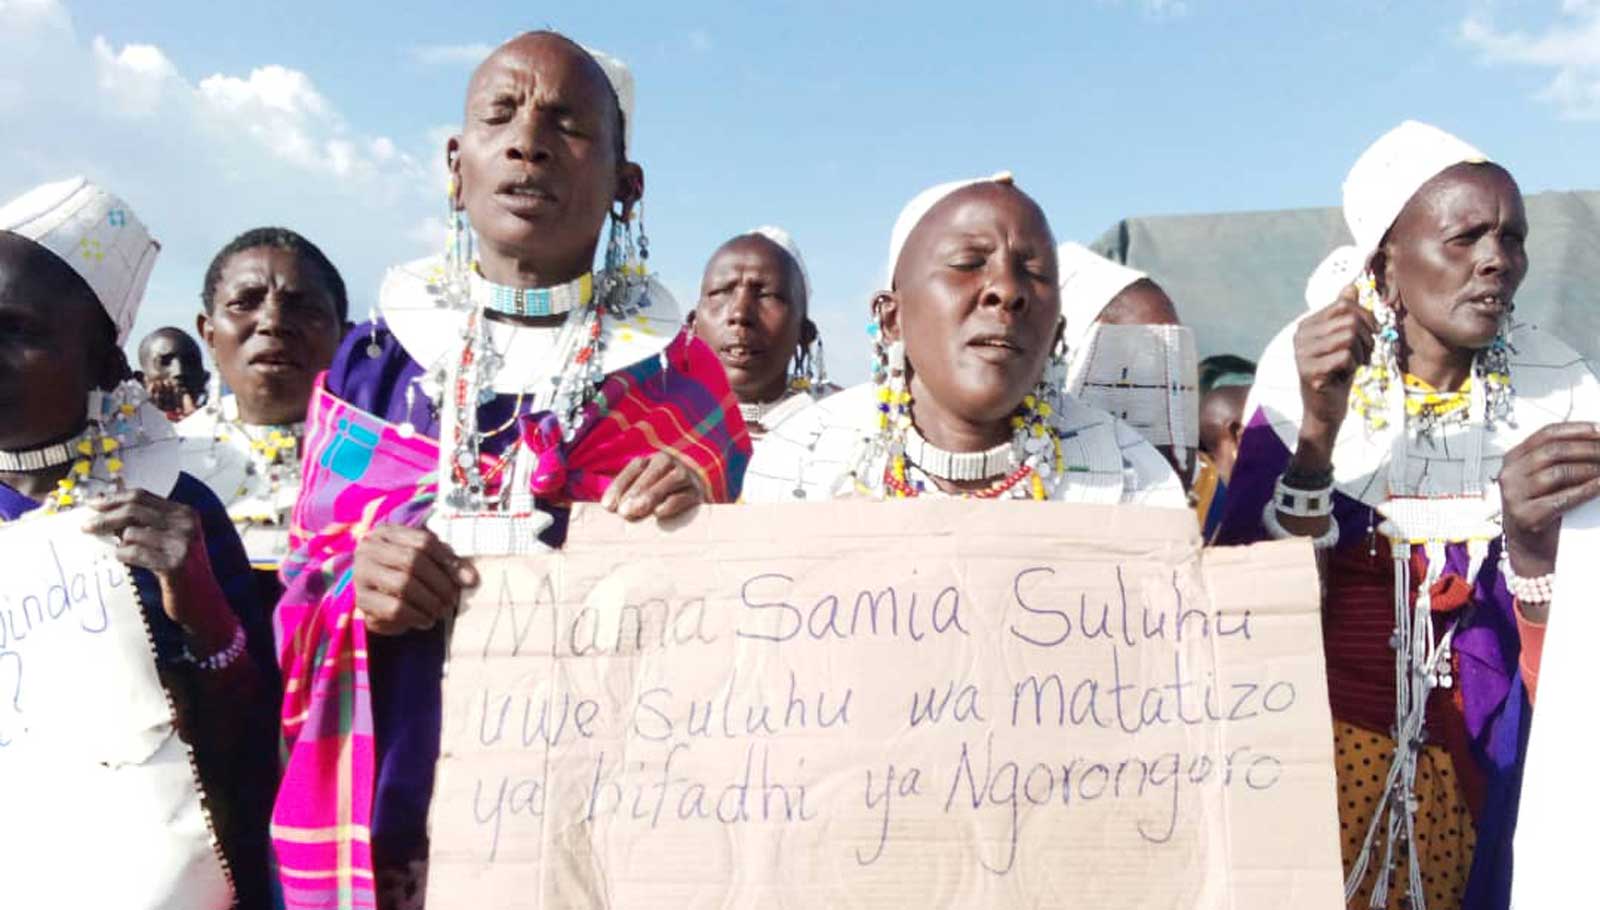 Mama Samia Suluhu
uwe suluhu wa matatizo
ya hifadhi ya Ngorongoro
?